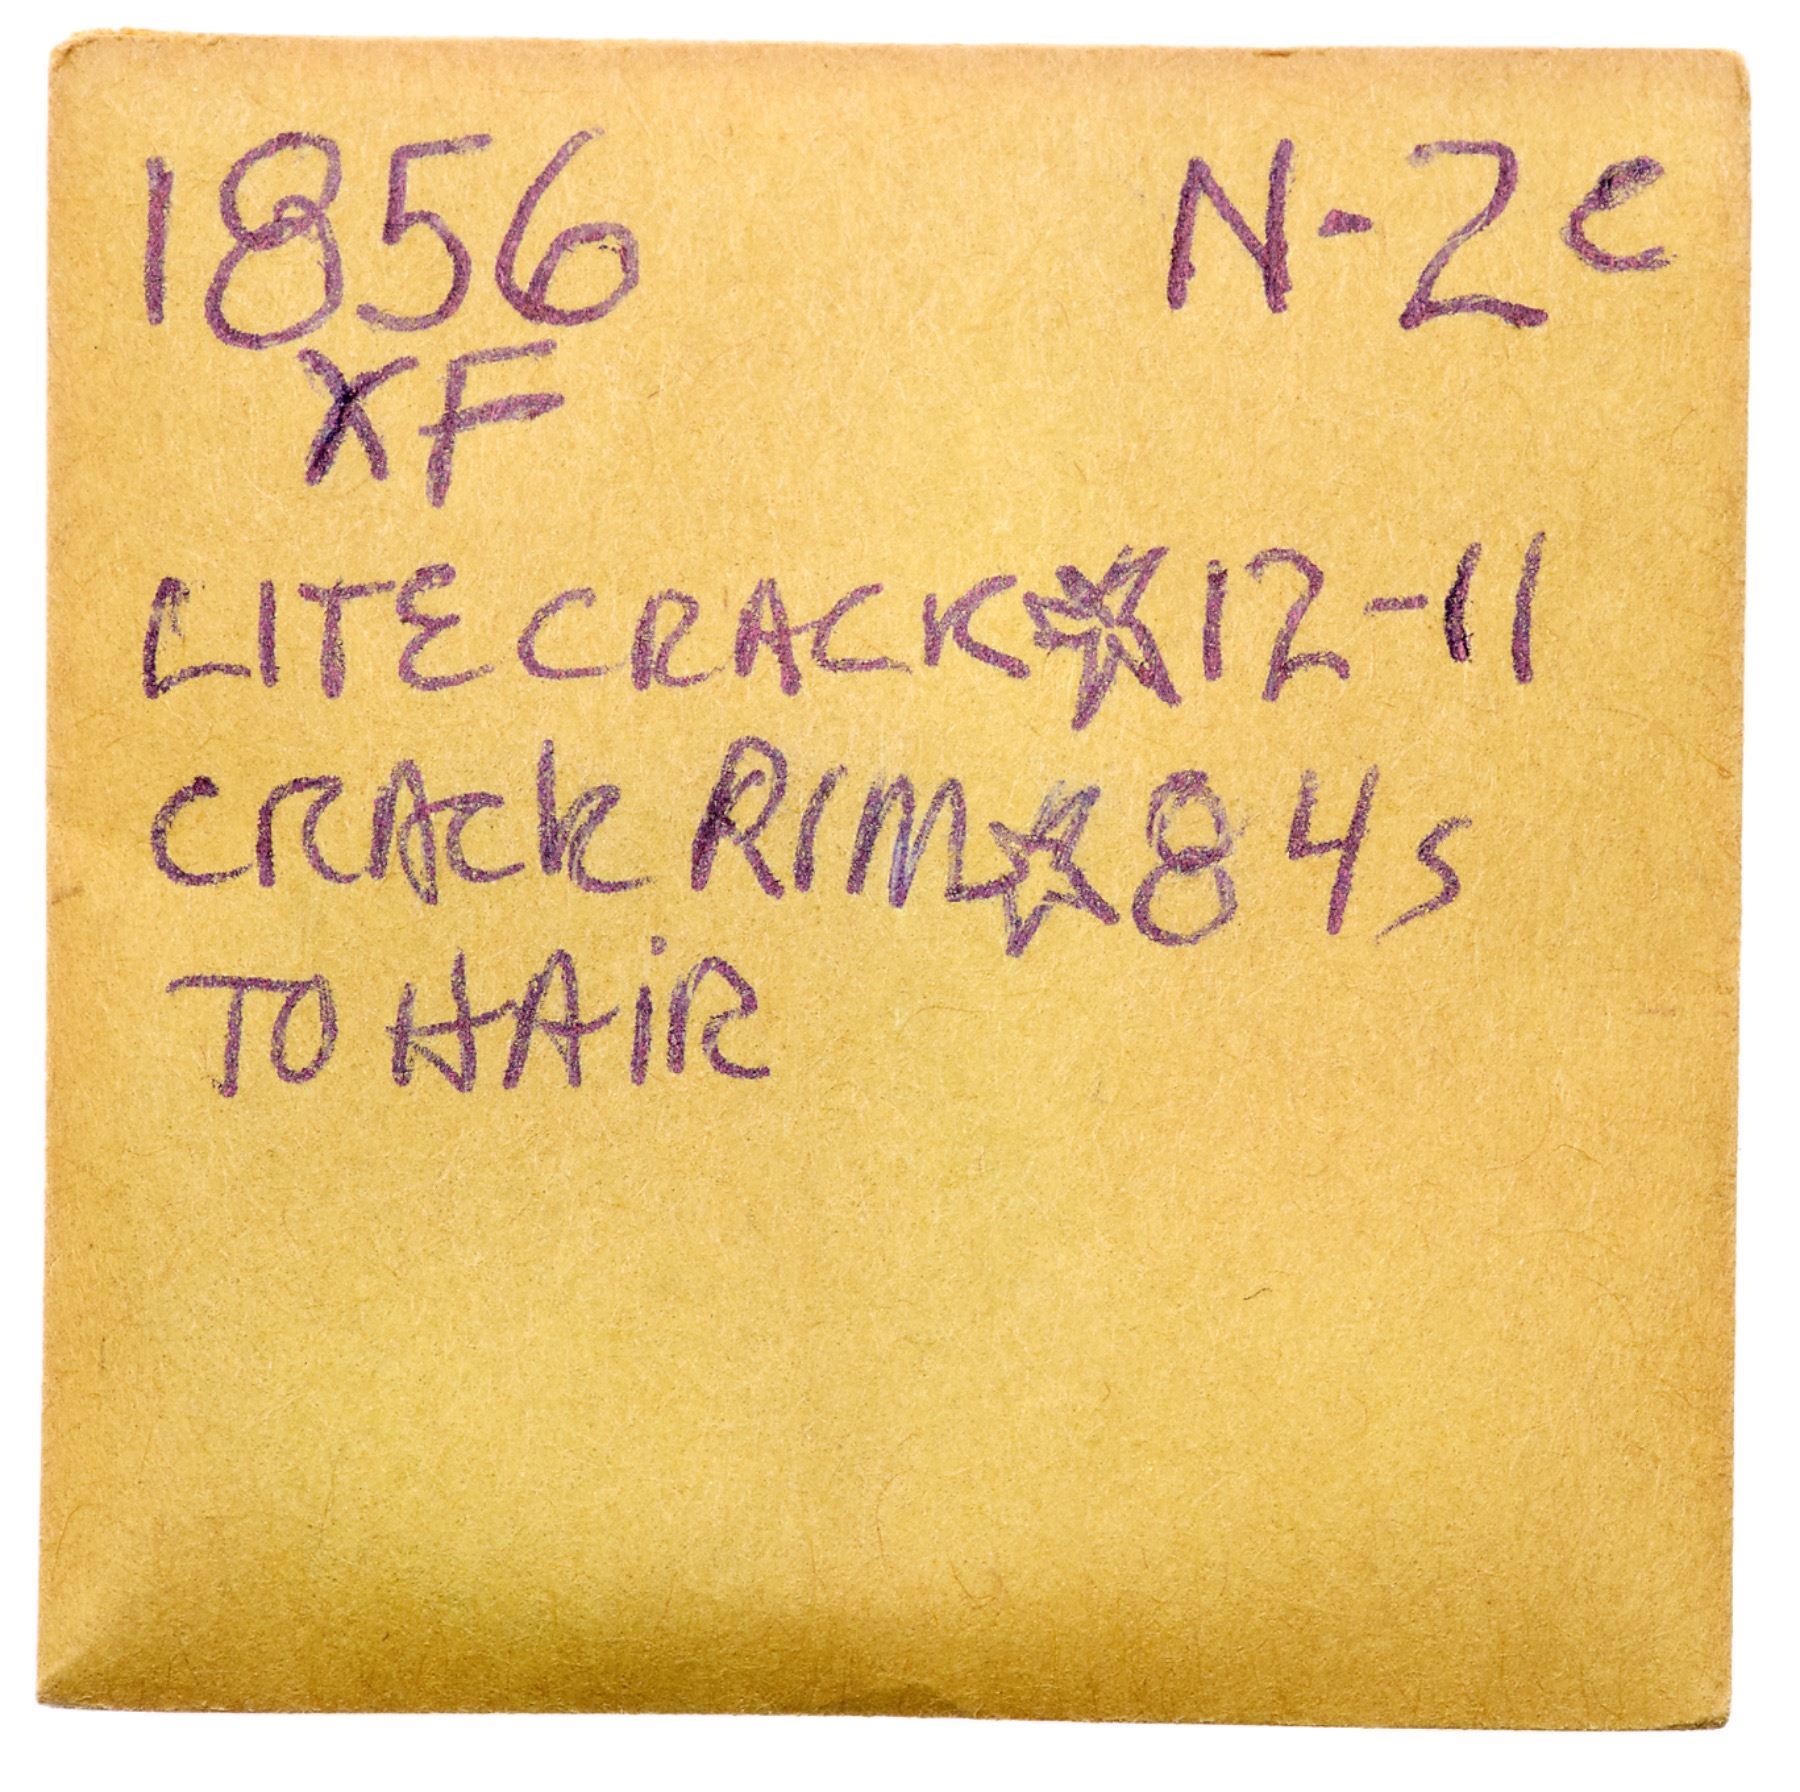 1856 N-2 e
XF
LITE CRACK ☆ 12-11
CRACK RIM ☆ 8 4s
TO HAIR